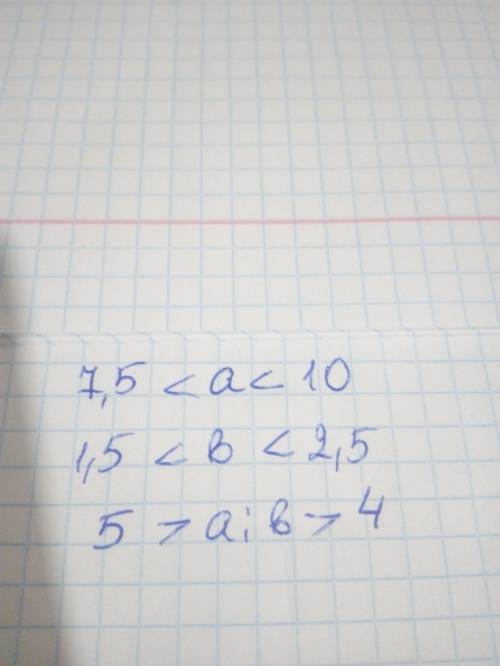 7,5 < a < 10
1,5 < в < 2,5
5 > a : в > 4